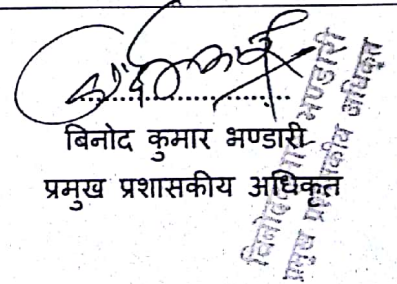 बिनोद कुमार भण्डारी
प्रमुख प्रशासकीय अधिकृत
बिनोद कुमार भण्डारी
प्रमुख प्रशासकीय अधिकृत